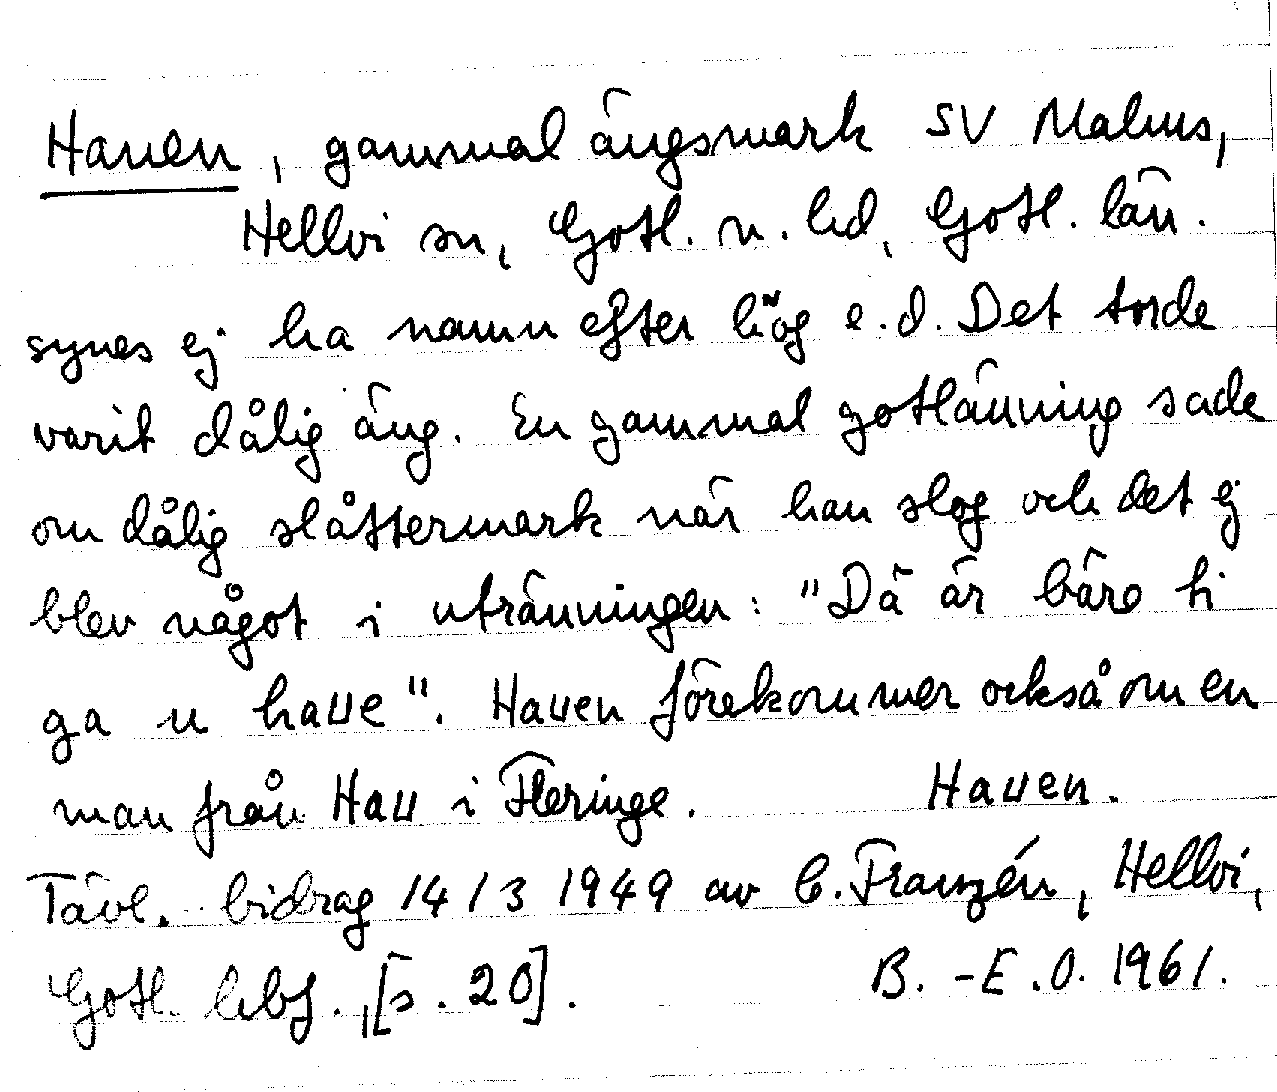 Hauen, gammal ängsmark SV Malms,
Hellvi sn, Gotl. n. hd, Gotl. län.
synes ej ha namn efter hög e.d. Det torde
varit dålig äng. En gammal gotlänning sade
om dålig slåttermark när han slog och det ej
blev något i utränningen: "Dä är bäre ti
ga u haue". Hauen förekommer också om en
man från Hau i Fleringe. Hauen.
Tävl. bidrag 14/3 1949 av C. Franzén, Hellvi,
Gotl. hbf., [s. 20]. B.-E.O. 1961.